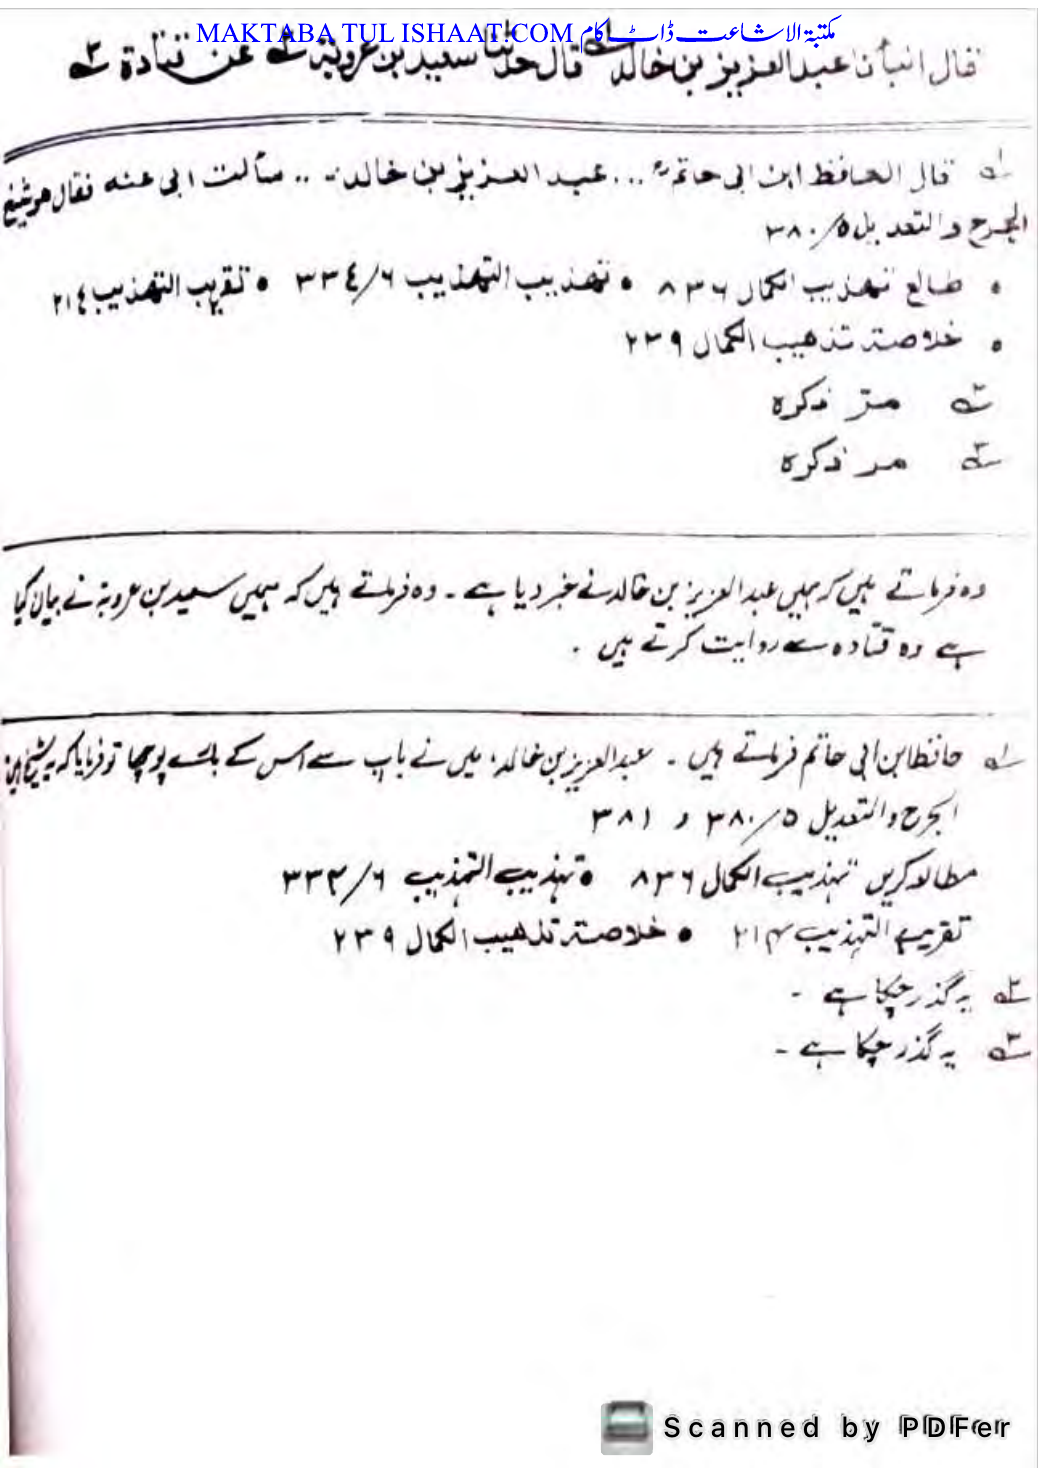 MAKTABA TUL ISHAAT.COM مکتبۃ الاشاعت ڈاٹ کام
قال انبأنا عبد العزیز بن خالد ۱ قال حدثنا سعید بن عروبة ۲ عن قتادة ۳
۱ قال الحافظ ابن ابی حاتمؒ ... عبد العزیز بن خالد .. سألت ابی عنه فقال هو شیخ
الجرح والتعدیل ۵/۳۸۰
• طالع تهذیب الکمال ۸۳۶ • تهذیب التهذیب ۶/۳۳٤ • تقریب التهذیب ۲۱٤
• خلاصة تذهیب الکمال ۲۳۹
۲ مر ذکره
۳ مر ذکره
وہ فرماتے ہیں کہ ہمیں عبد العزیز بن خالد نے خبر دیا ہے ۔ وہ فرماتے ہیں کہ ہمیں سعید بن عروبۃ نے بیان کیا
ہے وہ قتادہ سے روایت کرتے ہیں ۔
۱ حافظ ابن ابی حاتم فرماتے ہیں ۔ عبد العزیز بن خالد، میں نے باپ سے اس کے بارے پوچھا تو فرمایا کہ یہ شیخ ہیں
الجرح والتعدیل ۵/۳۸۰ و ۳۸۱
مطالعہ کریں تہذیب الکمال ۸۳۶ • تہذیب التہذیب ۶/۳۳۴
تقریب التہذیب ۲۱۴ • خلاصۃ تذھیب الکمال ۲۳۹
۲ یہ گذر چکا ہے ۔
۳ یہ گذر چکا ہے ۔
Scanned by PDFer